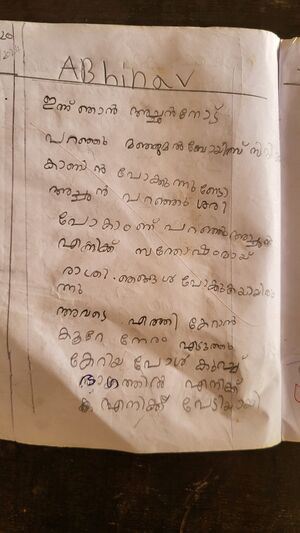 20
ABhinav
ഇന്ന് ഞാൻ അച്ഛൻനോട്
പറഞ്ഞു മഞ്ഞുമൽബോയിസ് സിനി
കാണാൻ പോകുന്നുണ്ടോ
അച്ഛൻ പറഞ്ഞു ശരി
പോകാംന്ന് പറഞ്ഞു അപ്പോൾ
എനിക്ക് സന്തോഷംമായ്
രാത്രി ഞങ്ങൾ പോകുകയായിരു
ന്നു
അവടെ എത്തി കേറാൻ
കുറേ നേരം എടുത്തു
കേറിയ പോൾ കുറച്ച്
ഭാഗത്തിൽ എനിക്ക്
എനിക്ക് പേടിയായി